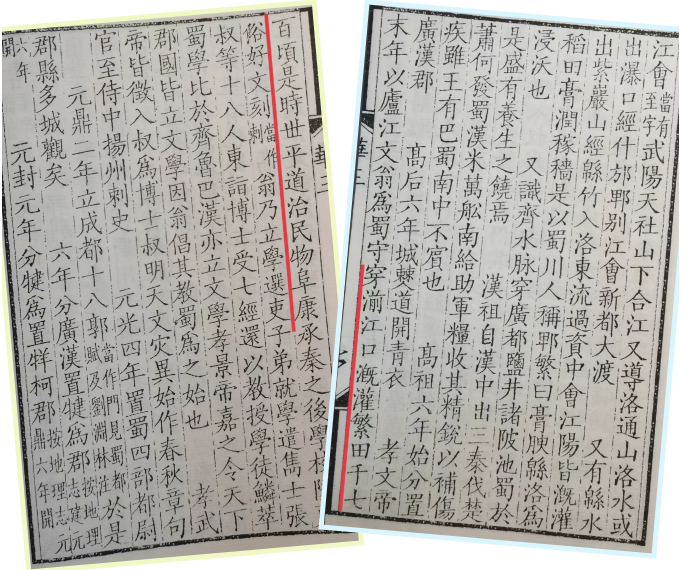 江會當有至字武陽天社山下合江又導洛通山洛水或
出瀑口經什邡郫别江會新都大渡　又有緜水
出紫巖山經緜竹入洛東流過資中會江陽皆溉灌
稻田膏潤稼穡是以蜀川人稱郫繁曰膏腴緜洛爲
浸沃也　又識齊水脉穿廣都鹽井諸陂池蜀於
是盛有養生之饒焉　漢祖自漢中出三秦伐楚
蕭何發蜀漢米萬舩南給助軍糧收其精銳以補傷
疾雖王有巴蜀南中不賓也　高祖六年始分置
廣漢郡　高后六年城僰道開青衣　孝文帝
末年以廬江文翁爲蜀守穿湔江口溉灌繁田千七
百頃是時世平道治民物阜康承秦之後學校
俗好文刻當作刺翁乃立學選吏子弟就學遣雋士張
叔等十八人東詣博士受七經還以教授學徒鱗萃
蜀學比於齊魯巴漢亦立文學孝景帝嘉之令天下
郡國皆立文學因翁倡其教蜀爲之始也　孝武
帝皆徵入叔爲博士叔明天文灾異始作春秋章句
官至侍中揚州刺史　元光四年置蜀四部都尉
元鼎二年立成都十八郭當作門見蜀都賦及劉淵林注於是
郡縣多城觀矣　六年分廣漢置犍爲郡按地理志建元
六年開　元封元年分犍爲置牂柯郡按地理志元鼎六年開